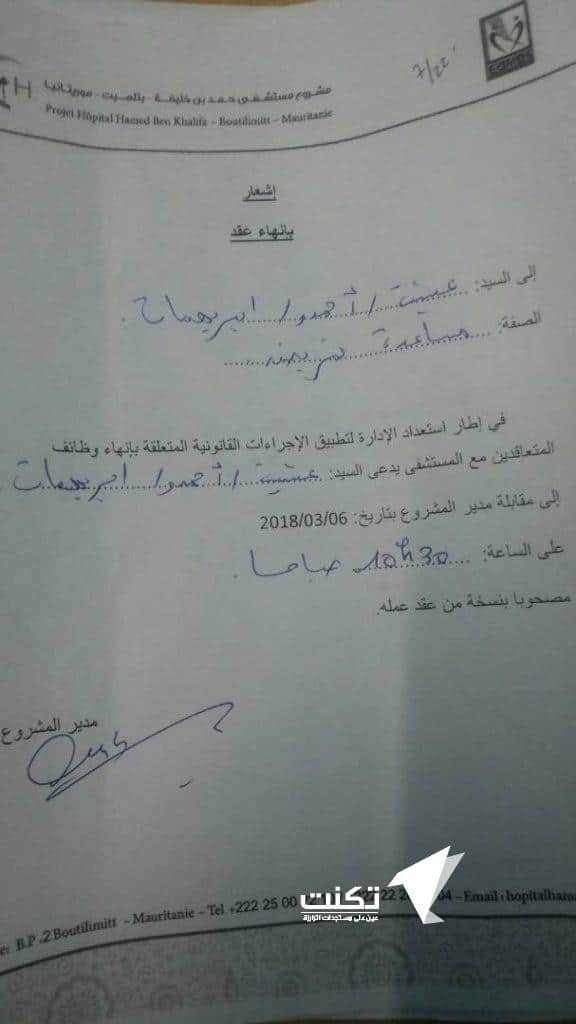 7/22
مشروع مستشفى حمد بن خليفة - بتلميت - موريتانيا
Projet Hôpital Hamed Ben Khalifa – Boutilimitt – Mauritanie
إشعار
بإنهاء عقد
إلى السيد: أحمدو
الصفة: مساعدة
في إطار استعداد الإدارة لتطبيق الإجراءات القانونية المتعلقة بإنهاء وظائف
المتعاقدين مع المستشفى يدعى السيد: أحمدو
إلى مقابلة مدير المشروع بتاريخ: 2018/03/06
على الساعة: 10h30 صباحا.
مصحوبا بنسخة من عقد عمله.
مدير المشروع
تكنت
B.P .2 Boutilimitt – Mauritanie – Tel +222 25 00 04 – Email : hopitalham